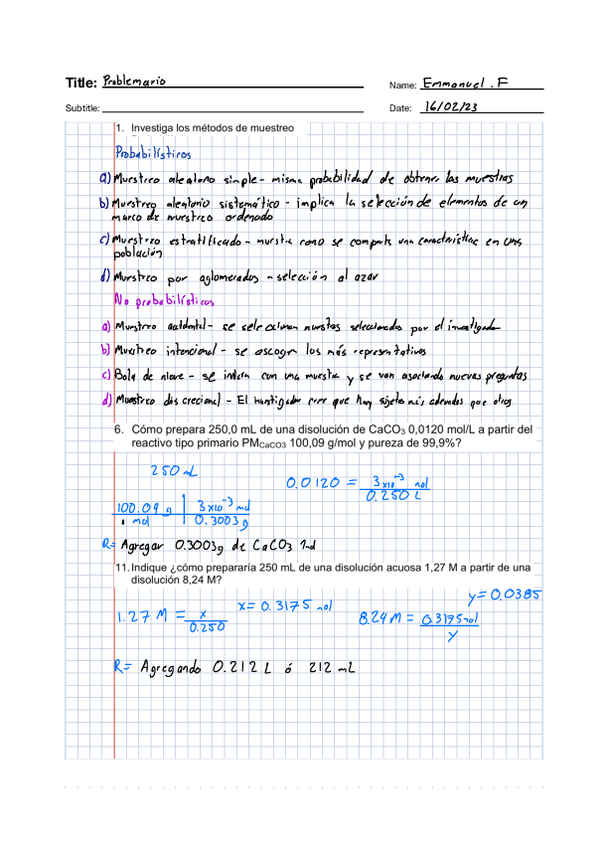 Title: Problemario
Name: Emmanuel . F
Subtitle:
Date: 16/02/23
1. Investiga los métodos de muestreo
Probabilísticos
a) Muestreo aleatorio simple - misma probabilidad de obtener las muestras
b) Muestreo aleatorio sistemático - implica la selección de elementos de un
marco de muestreo ordenado
c) Muestreo estratificado - muestra como se comporta una característica en una
población
d) Muestreo por aglomerados - selección al azar
No probabilísticos
a) Muestreo accidental - se seleccionan muestras seleccionadas por el investigador
b) Muestreo intencional - se escogen los más representativos
c) Bola de nieve - se inician con una muestra y se van asociando nuevas preguntas
d) Muestreo discrecional - El investigador cree que hay sujetos más adecuados que otros
6. Cómo prepara 250,0 mL de una disolución de CaCO3 0,0120 mol/L a partir del
reactivo tipo primario PMCaCO3 100,09 g/mol y pureza de 99,9%?
250 mL
0.0120 = 3x10⁻³ mol
0.250 L
100.09 g | 3x10⁻³ mol
1 mol | 0.3003 g
R= Agregar 0.3003g de CaCO3
11. Indique ¿cómo prepararía 250 mL de una disolución acuosa 1,27 M a partir de una
disolución 8,24 M?
y=0.0385
1.27 M = x
0.250
x= 0.3175 mol
8.24 M = 0.3175 mol
y
R= Agregando 0.212 L ó 212 mL